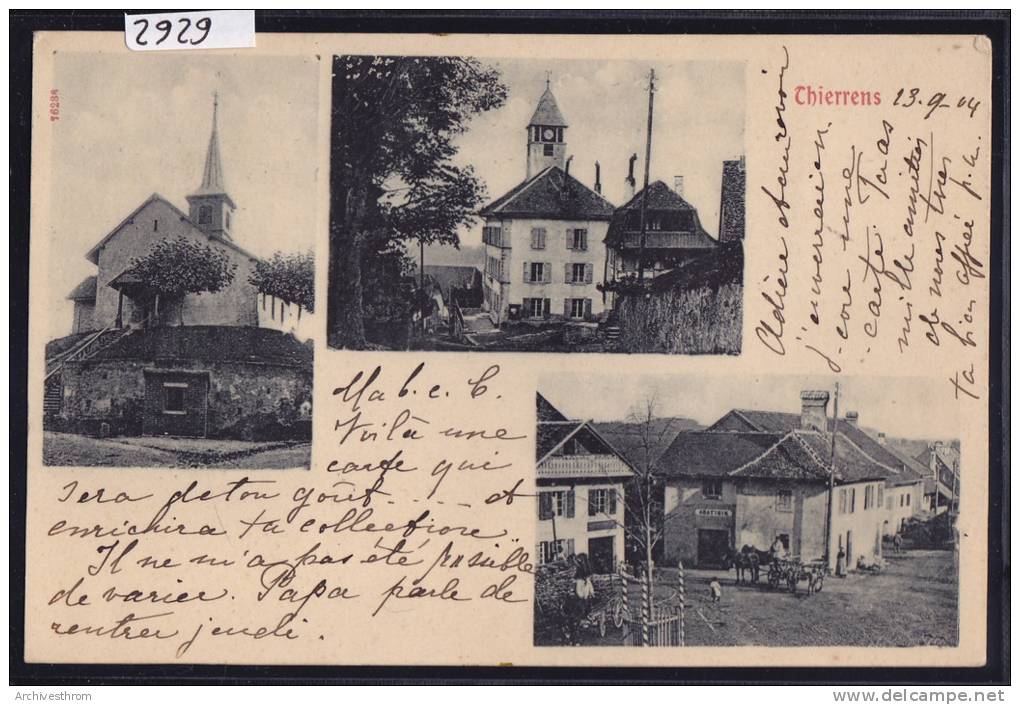 2929
76238
Thierrens 13.9.04
Ma b. c. C.
Voilà une
carte qui
sera de ton goût.... et
enrichira ta collection.
Il ne m'a pas été possible
de varier. Papa parle de
rentrer jeudi.
Adieu et au revoir
j'enverrai en-
-core une
carte.
mille amitiés
de nous tous
ta bien affée
GRAFINIR
Archivesthrom
www.delcampe.net